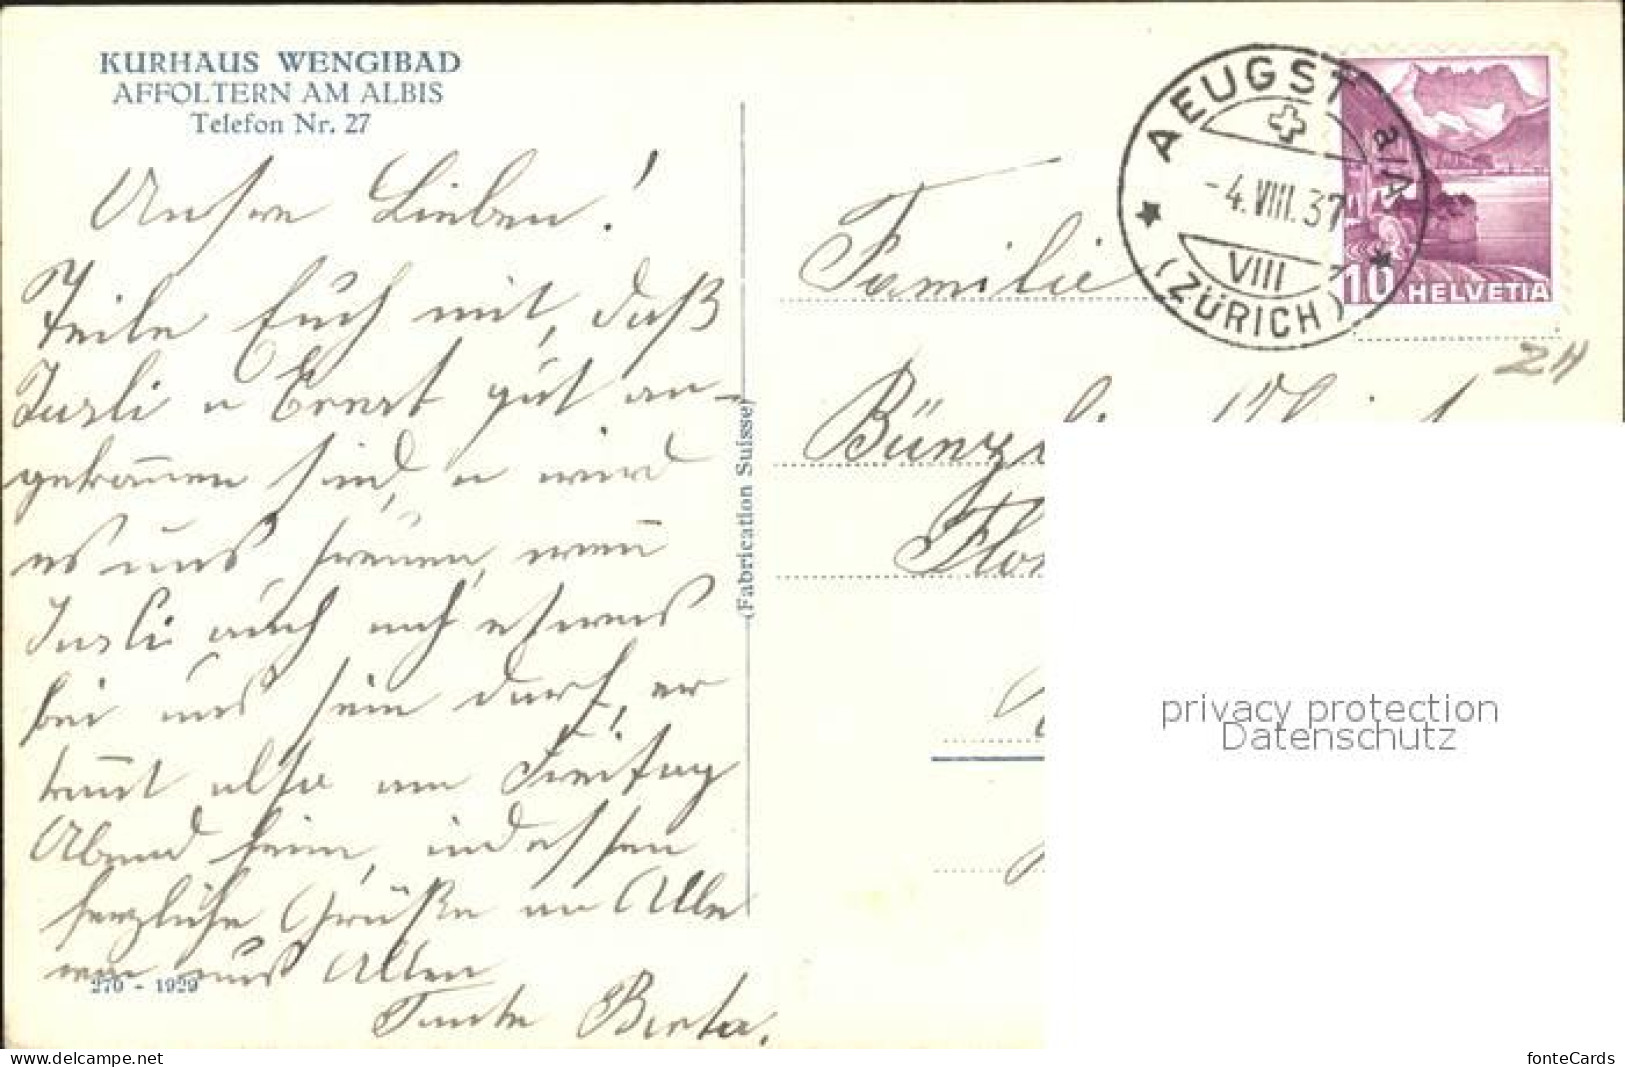 KURHAUS WENGIBAD
AFFOLTERN AM ALBIS
Telefon Nr. 27
Unsere Lieben!
Teile Euch mit, daß
Jusli u Ernst gut an-
gekom̄en sind, u wird
es uns freuen, wen̄
Jusli auch noch etwas
bei uns sein darf, er
kom̄t also am Freitag
Abend heim, indessen
herzliche Grüße an Alle
von uns Allen
Tante Berta.
270 - 1929
(Fabrication Suisse)
AEUGST a/A
-4.VIII.37
VIII
(ZÜRICH)
10 HELVETIA
ZH
Familie
privacy protection
Datenschutz
www.delcampe.net
fonteCards